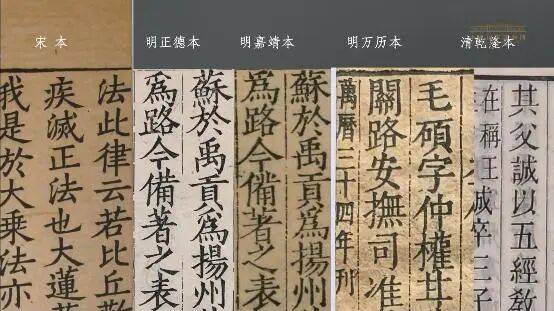 宋 本
明正德本
明嘉靖本
明万历本
清乾隆本
法此律云若比丘
疾滅正法也大蓮
我是於大乘法亦
蘇於禹貢為揚州
為路今備著之表
蘇於禹貢為揚州
為路今備著之表
毛碩字仲權
關路安撫司准
萬曆三十四年刊
其父誠以五經教
在稱王成卒三子